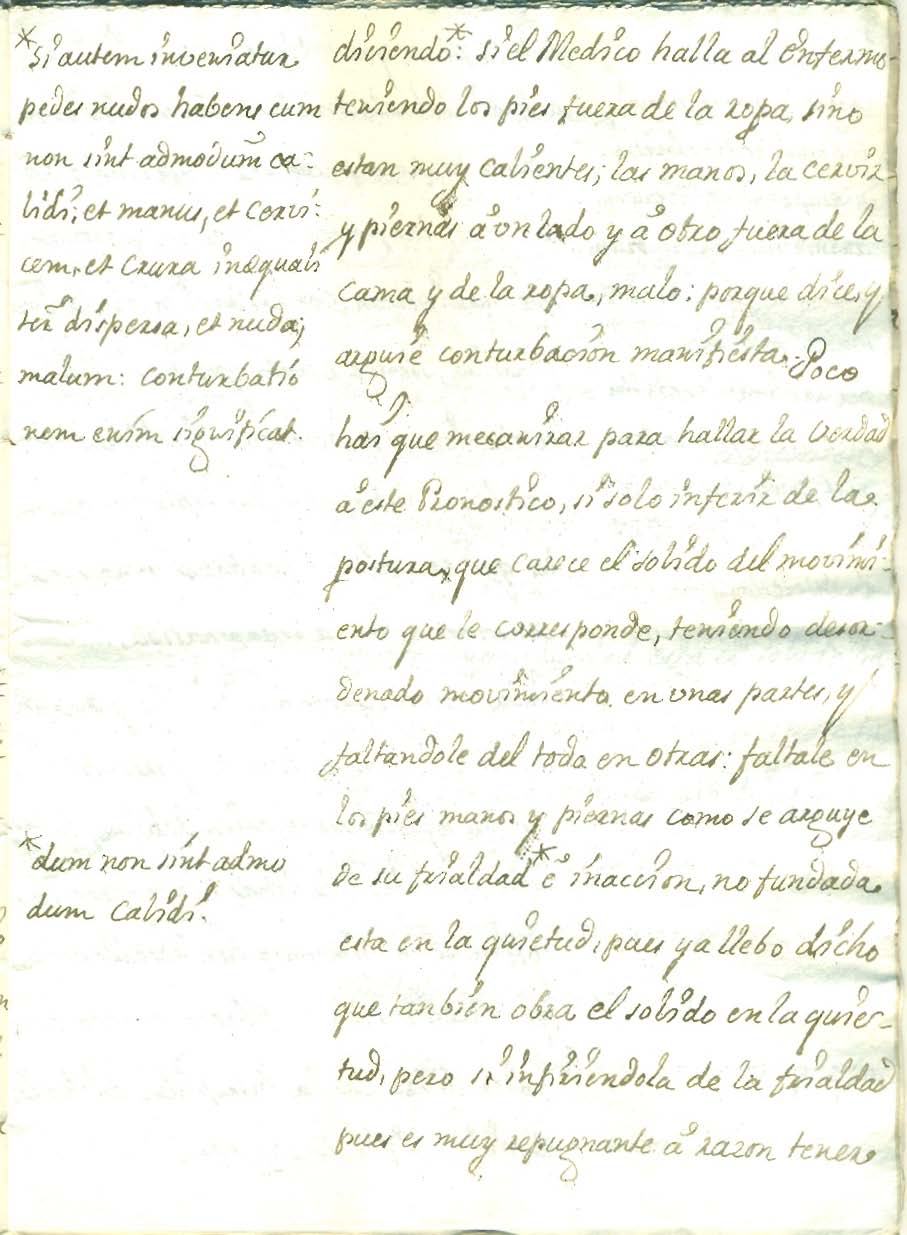 *
si autem inveniatur
pedes nudos habens cum
non sint admodum ca-
lidi, et manus, et cervi-
cem, et crura inequali
ter dispersa, et nuda;
malum: conturbatio
nem enim significat.
*
dum non sint admo
dum calidi.
diciendo*: si el Medico halla al enfermo
teniendo los pies fuera de la ropa, sino
estan muy calientes; las manos, la cerviz
y piernas á un lado y á otro fuera de la
cama y de la ropa, malo: porque dice, y
arguie conturbacion manifiesta. Poco
hai que mecanizar para hallar la verdad
a este Pronostico, si solo inferir de la
postura, que carece el solido del movimi-
ento que le corresponde, teniendo desor-
denado movimiento en unas partes, y
faltandole del todo en otras: faltale en
los pies manos y piernas como se arguye
de su frialdad* é inaccion, no fundada
esta en la quietud, pues ya llebo dicho
que tanbien obra el solido en la quie-
tud, pero si infiriendola de la frialdad
pues es muy repugnante á razon tener